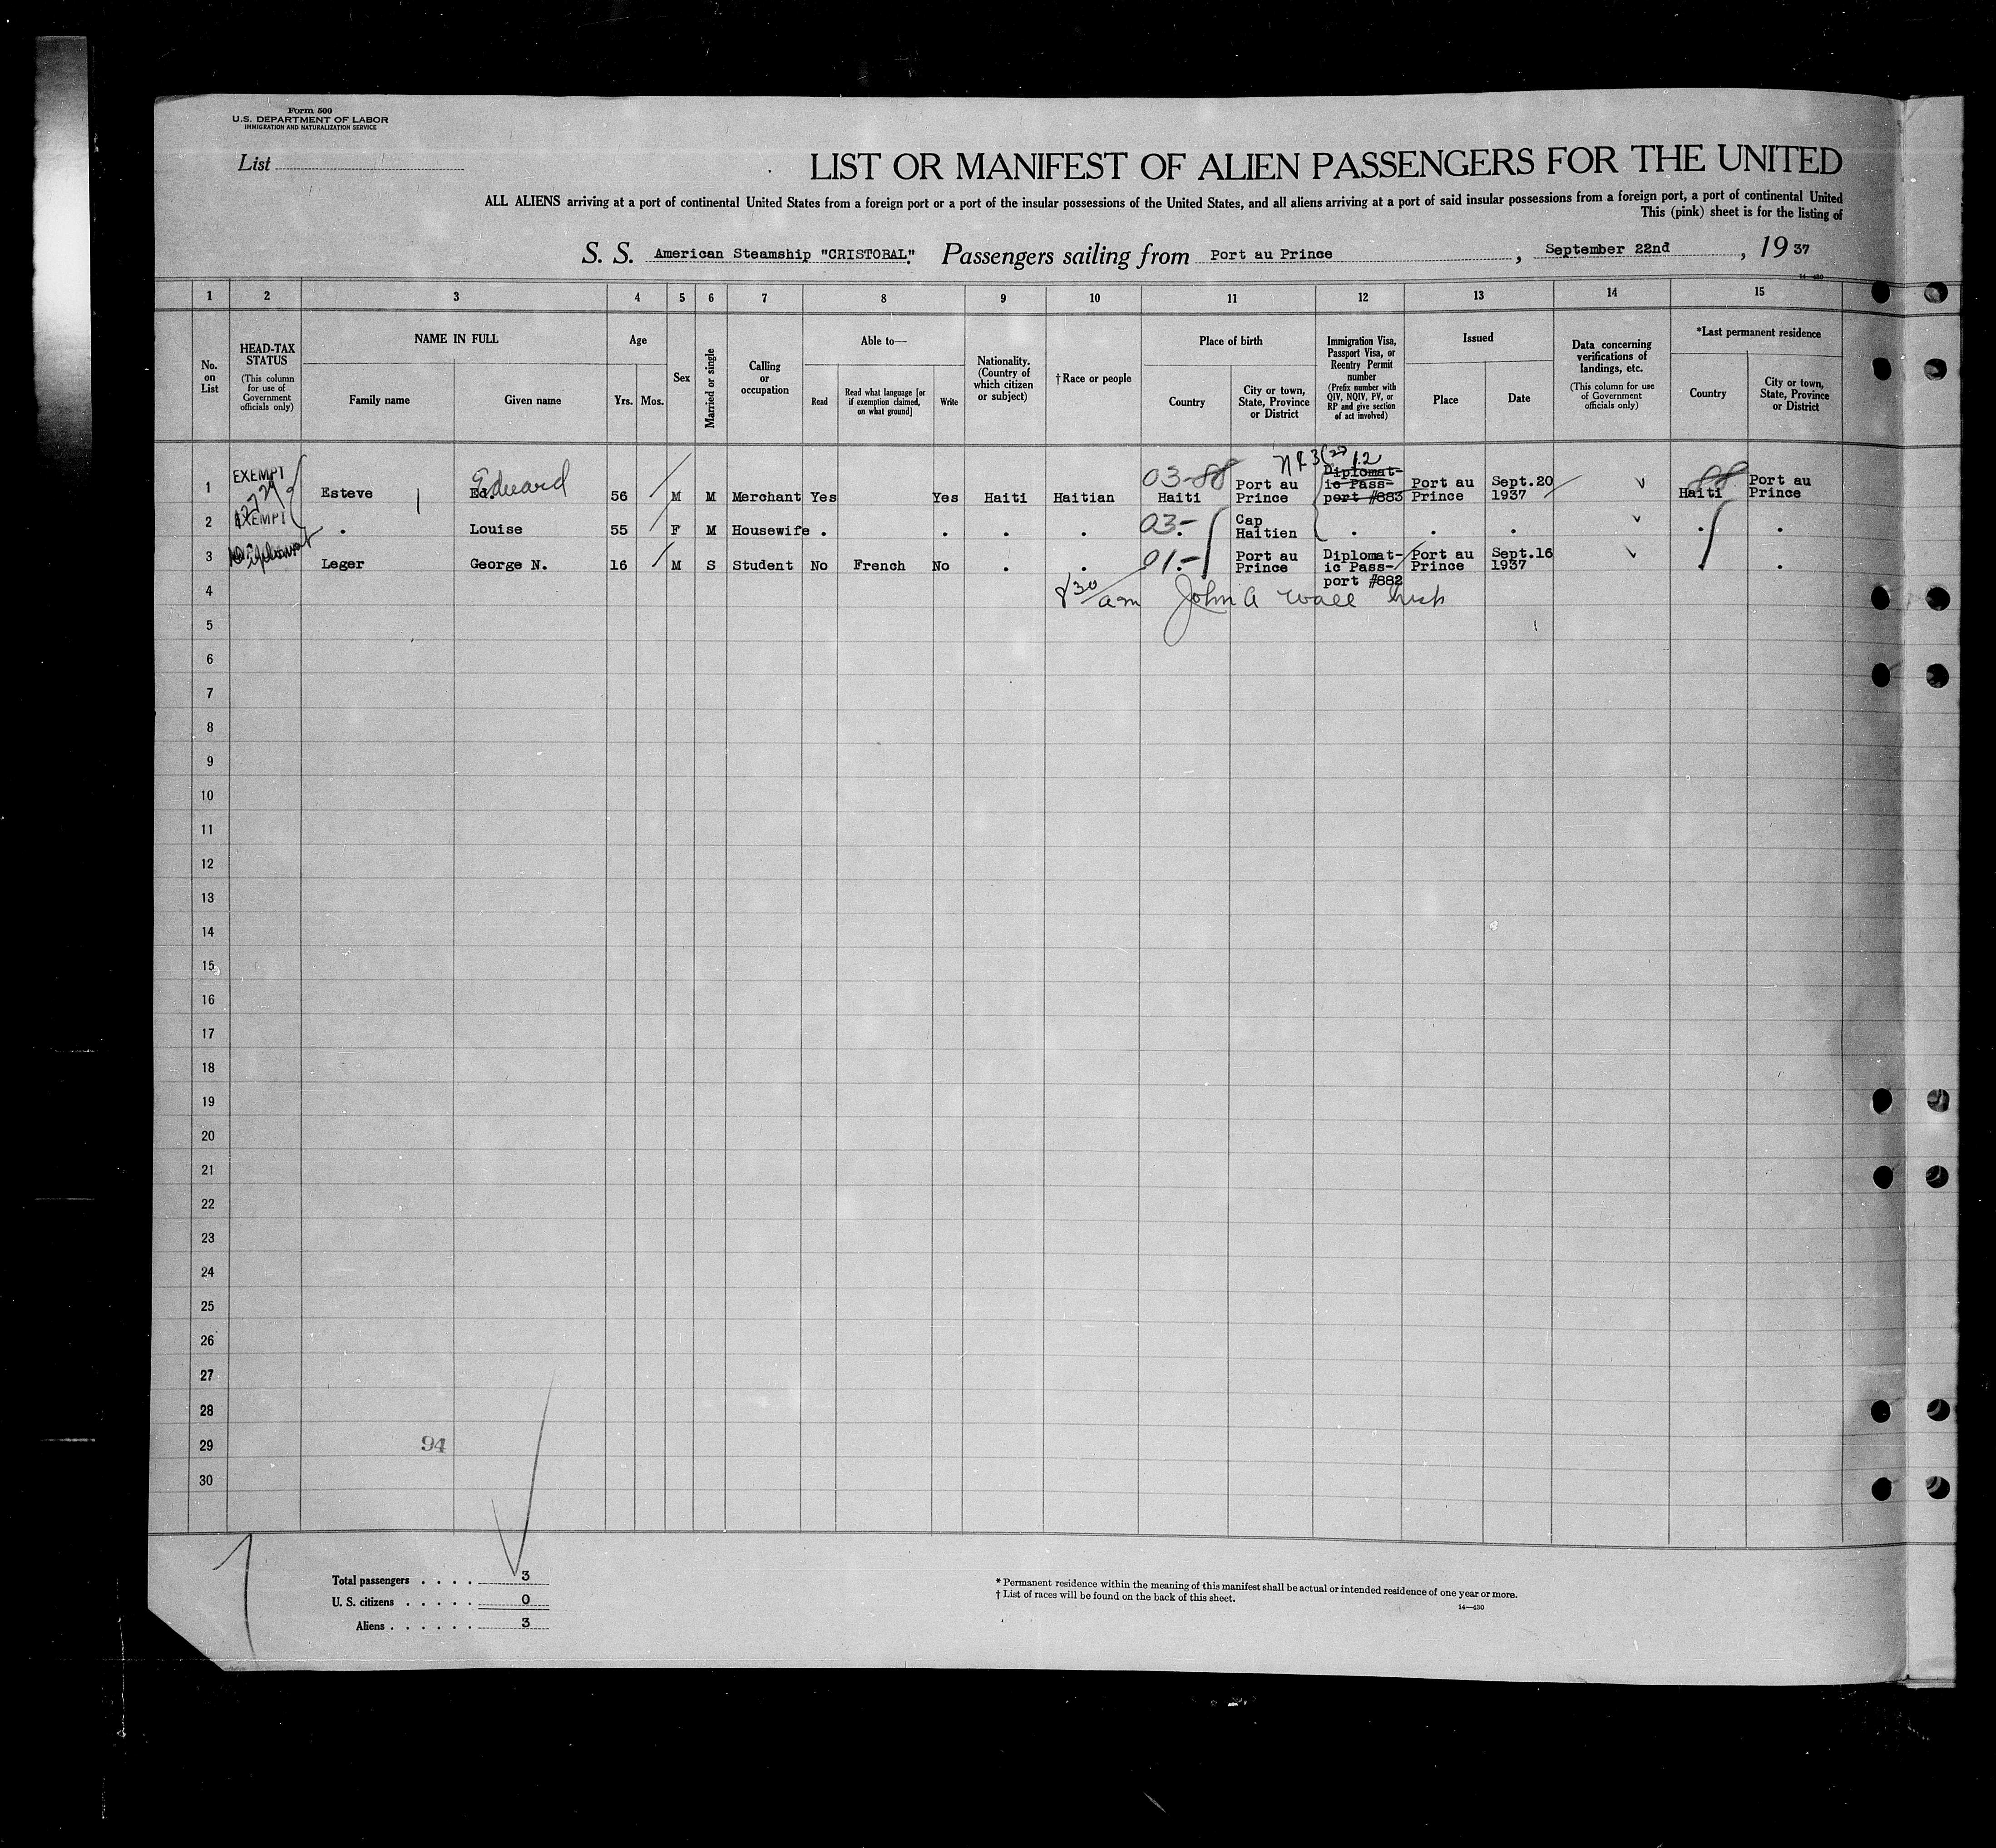 Form 500
U.S. DEPARTMENT OF LABOR
IMMIGRATION AND NATURALIZATION SERVICE
List
LIST OR MANIFEST OF ALIEN PASSENGERS FOR THE UNITED
ALL ALIENS arriving at a port of continental United States from a foreign port or a port of the insular possessions of the United States, and all aliens arriving at a port of said insular possessions from a foreign port, a port of continental United
This (pink) sheet is for the listing of
S. S. American Steamship "CRISTOBAL" Passengers sailing from Port au Prince, September 22nd, 1937
14—430
1 2 3 4 5 6 7 8 9 10 11 12 13 14 15
No. on List
HEAD-TAX STATUS
(This column for use of Government officials only)
NAME IN FULL
Family name Given name
Age
Yrs. Mos.
Sex
Married or single
Calling or occupation
Able to—
Read
Read what language [or if exemption claimed, on what ground]
Write
Nationality. (Country of which citizen or subject)
†Race or people
Place of birth
Country
City or town, State, Province or District
Immigration Visa, Passport Visa, or Reentry Permit number
(Prefix number with QIV, NQIV, PV, or RP and give section of act involved)
Issued
Place Date
Data concerning verifications of landings, etc.
(This column for use of Government officials only)
*Last permanent residence
Country
City or town, State, Province or District
1 EXEMPT Esteve Ed. Edward 56 M M Merchant Yes Yes Haiti Haitian 03-88 Haiti Port au Prince Diplomat-ic Pass-port #883 Port au Prince Sept.20 1937 88 Haiti Port au Prince
2 EXEMPT . Louise 55 F M Housewife . . . . 03- . Cap Haitien . . . . .
3 Diplomat Leger George N. 16 M S Student No French No . . 01.- Port au Prince Diplomat-ic Pass-port #882 Port au Prince Sept.16 1937 .
4 8 30/am John A Wall Insp
5
6
7
8
9
10
11
12
13
14
15
16
17
18
19
20
21
22
23
24
25
26
27
28
29 94
30
Total passengers . . . . 3
U. S. citizens . . . . . 0
Aliens . . . . . . 3
* Permanent residence within the meaning of this manifest shall be actual or intended residence of one year or more.
† List of races will be found on the back of this sheet.
14—430